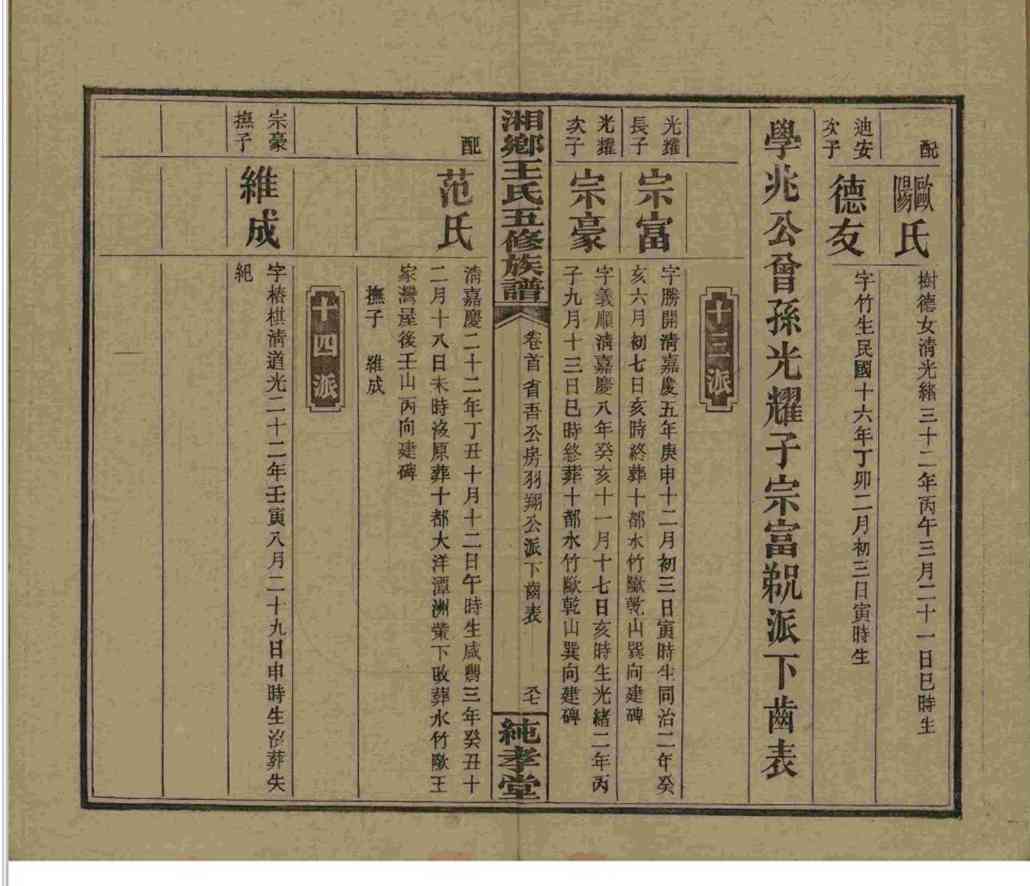 配
歐陽氏
樹德女清光緒三十二年丙午三月二十一日巳時生
迪安
次子
德友
字竹生民國十六年丁卯二月初三日寅時生
學兆公曾孫光耀子宗富
派下齒表
十三派
光耀
長子
宗富
字勝開清嘉慶五年庚申十二月初三日寅時生同治二年癸
亥六月初七日亥時終葬十都水竹歐乾山巽向建碑
光耀
次子
宗豪
字義順清嘉慶八年癸亥十一月十七日亥時生光緒二年丙
子九月十三日巳時終葬十都水竹歐乾山巽向建碑
湘鄉王氏五修族譜
卷首
省吾公房羽翔公派下齒表
純孝堂
配
范氏
清嘉慶二十二年丁丑十月十二日午時生咸豐三年癸丑十
二月十八日未時歿原葬十都大洋潭洲
下改葬水竹歐王
家灣屋後壬山丙向建碑
撫子 維成
十四派
宗豪
撫子
維成
字椿棋清道光二十二年壬寅八月二十九日申時生沒葬失
紀